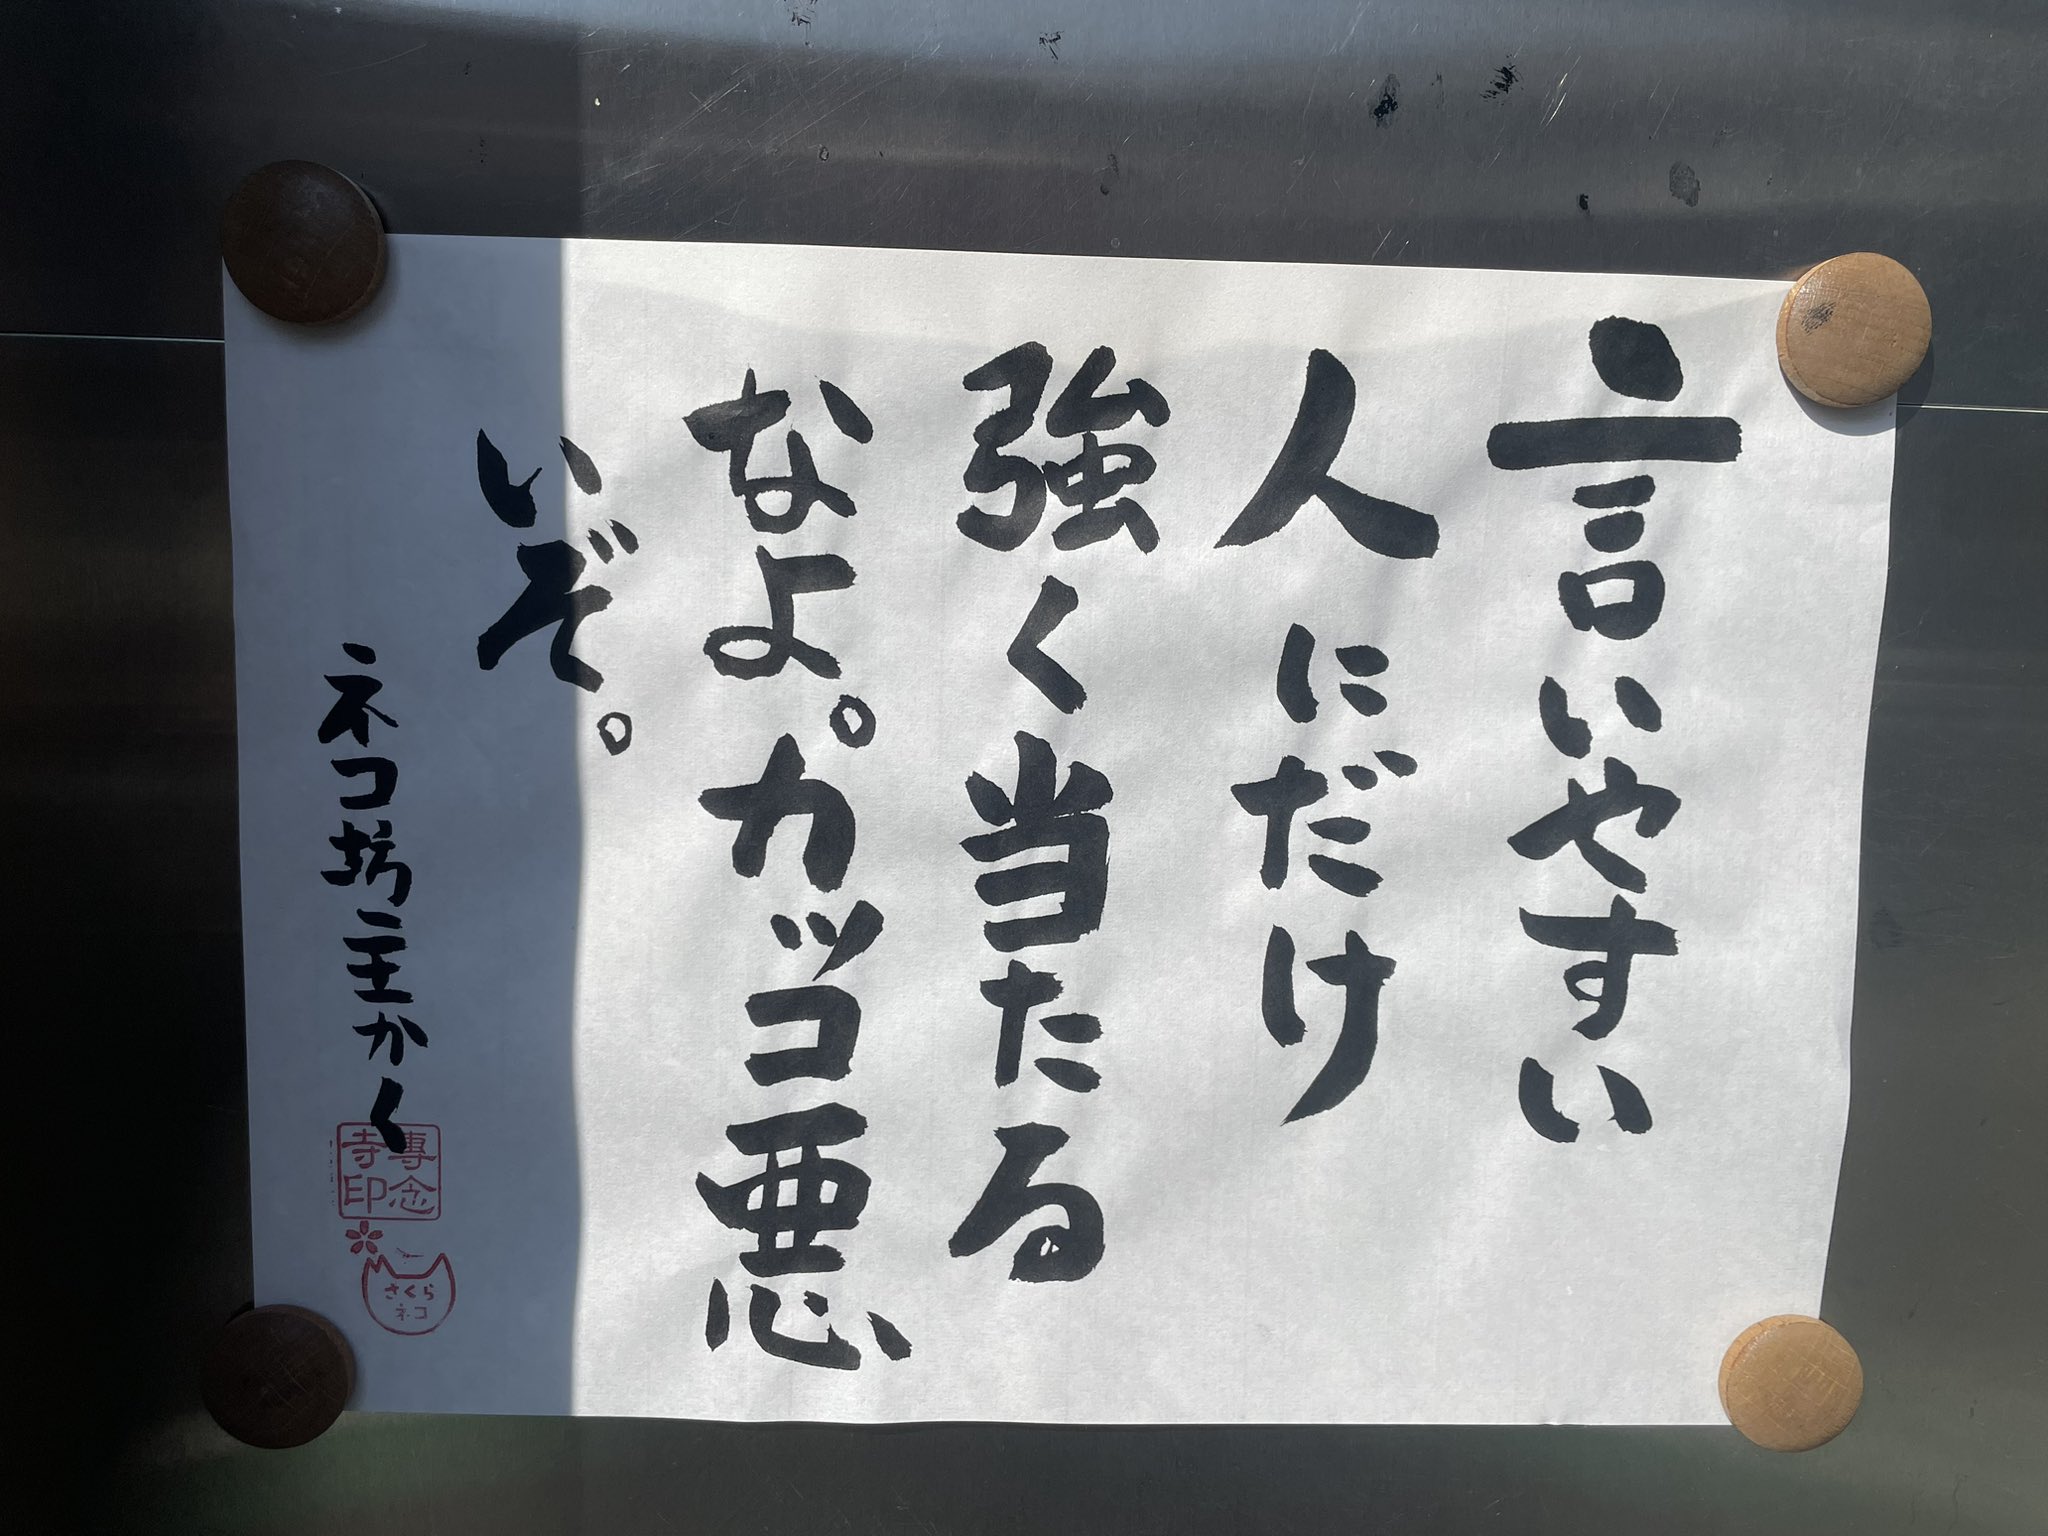 言いやすい
人にだけ
強く当たる
なよ。カッコ悪
いぞ。
ネコ坊主かく
專念
寺印
さくら
ネコ